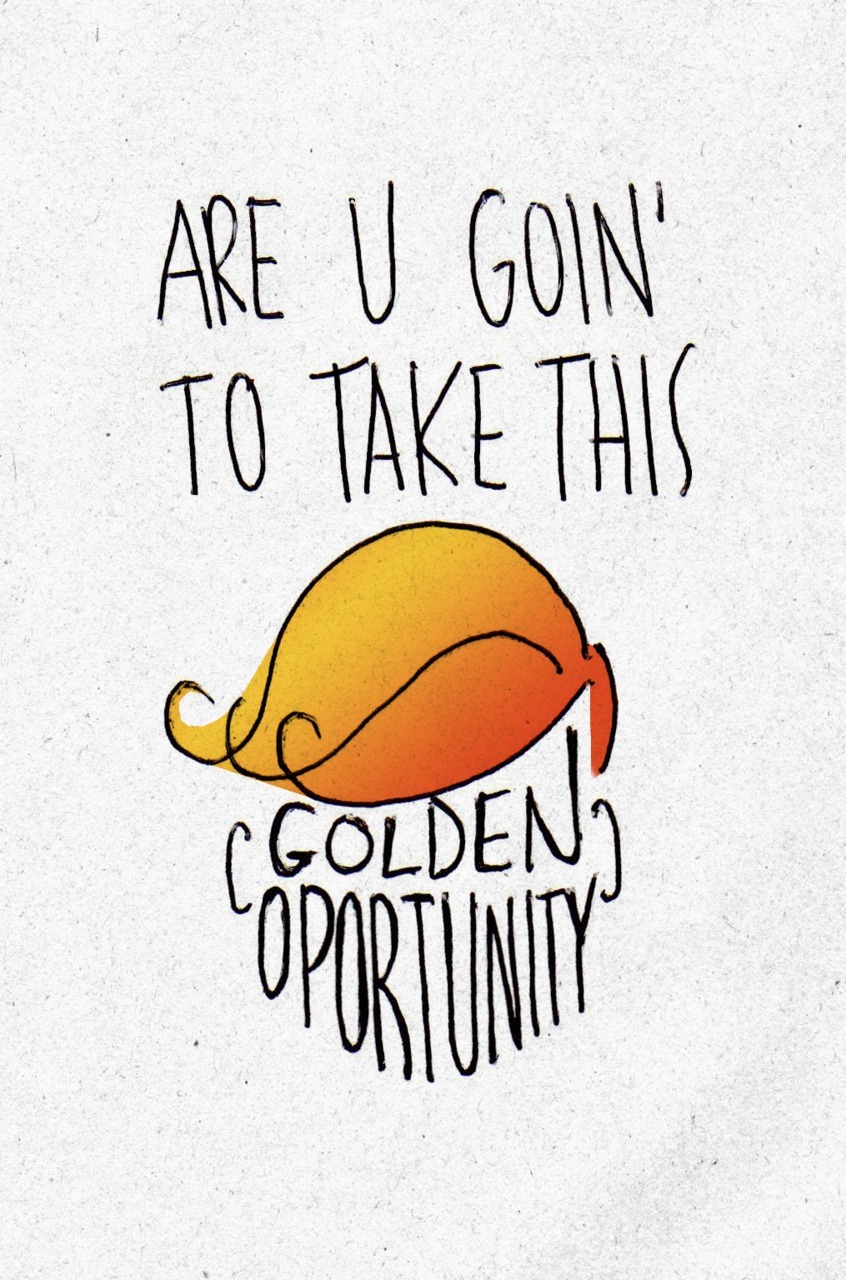 ARE U GOIN'
TO TAKE THIS
GOLDEN
OPORTUNITY